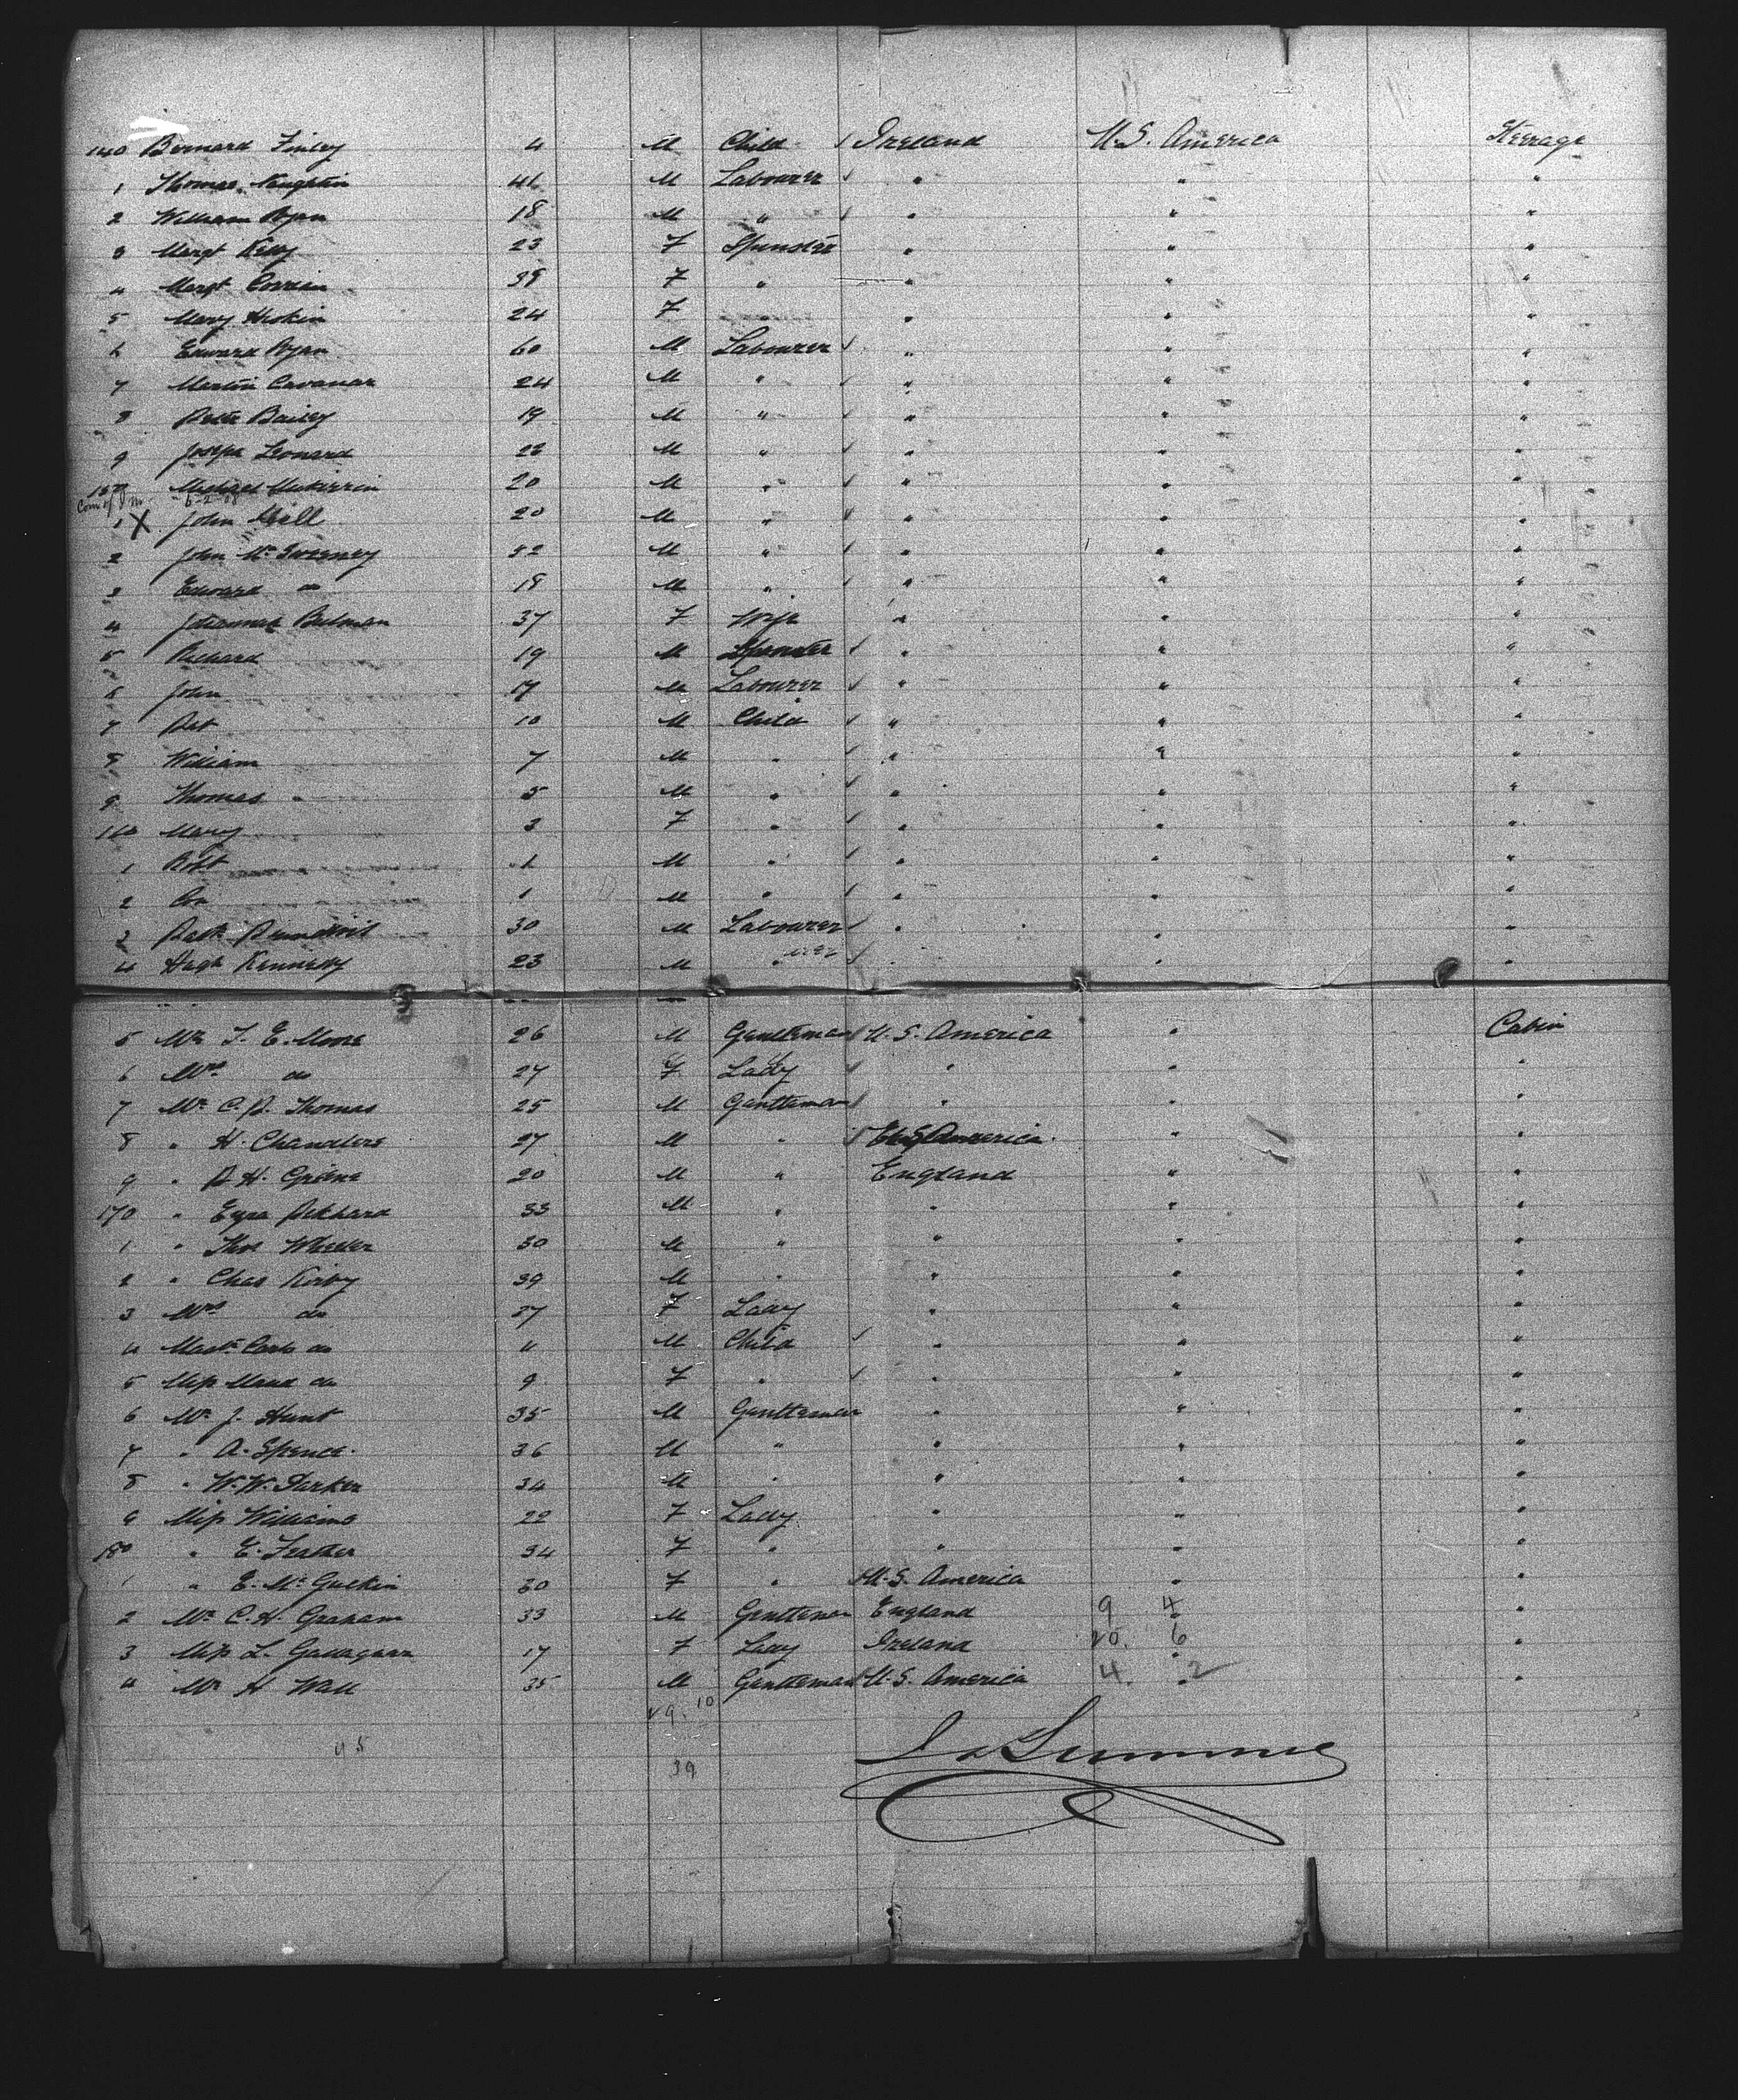 140 Bernard Finley 4 M Child Ireland U.S. America Steerage
1 Thomas Naughtin 41 M Labourer " " "
2 William Ryan 18 M " " " "
3 Margt Kelly 23 F Spinster " " "
4 Margt 39 F " " " "
5 Mary 24 F " " "
6 Edward Ryan 60 M Labourer " " "
7 Martin Cavanar 24 M " " " "
8 Peter Bailey 19 M " " " "
9 Joseph Leonard 22 M " " " "
150 Michael 20 M " " " "
6-2-08
1 X John 20 M " " " "
2 John Mc Sweeney 52 M " " " "
3 Edward do 18 M " " " "
4 Johannah 37 F Wife " " "
5 Richard 19 M " " "
6 John 17 M Labourer " " "
7 Pat 10 M Child " " "
8 William 7 M " " " "
9 Thomas 5 M " " " "
160 Mary 3 F " " " "
1 Robt 1 M " " " "
2 Con 1 M " " " "
3 Patk 30 M Labourer " " "
4 Hugh Kennedy 23 M " " " "
5 Mr T. E. Moore 26 M Gentleman U.S. America " Cabin
6 Mrs do 27 F Lady " " "
7 Mr C. P. Thomas 25 M Gentleman " " "
8 " H. Chandlers 27 M " U.S. America " "
9 " R. H. Greene 20 M " England " "
170 " Ezra 33 M " " " "
1 " Thos Wheeler 30 M " " " "
2 " Chas Kirby 39 M " " " "
3 Mrs do 37 F Lady " " "
4 Mastr do 11 M Child " " "
5 Miss Maud do 9 F " " " "
6 Mr J. Hunt 35 M Gentleman " " "
7 " A. Spence 36 M " " " "
8 " W. W. Parker 34 M " " " "
9 Miss Williams 22 F Lady " " "
180 " E. Feather 34 F " " " "
1 " E. Mc Guckin 30 F " U.S. America " "
2 Mr C. H. Graham 33 M Gentleman England 9 4 " "
3 Miss L. 17 F Lady Ireland 20 6 " "
4 Mr H Wall 35 M Gentleman U.S. America 4 2 " "
10
45
39